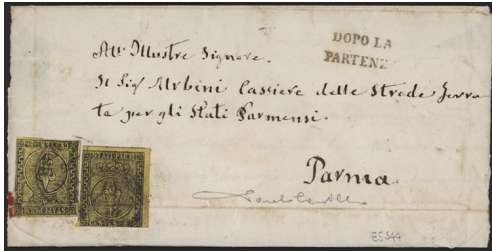 DOPO LA
PARTENZ
All' Illustre Signore.
Il Sigr Urbini Cassiere delle Strade Ferra
te per gli Stati Parmensi.
STATI PARM
Parma